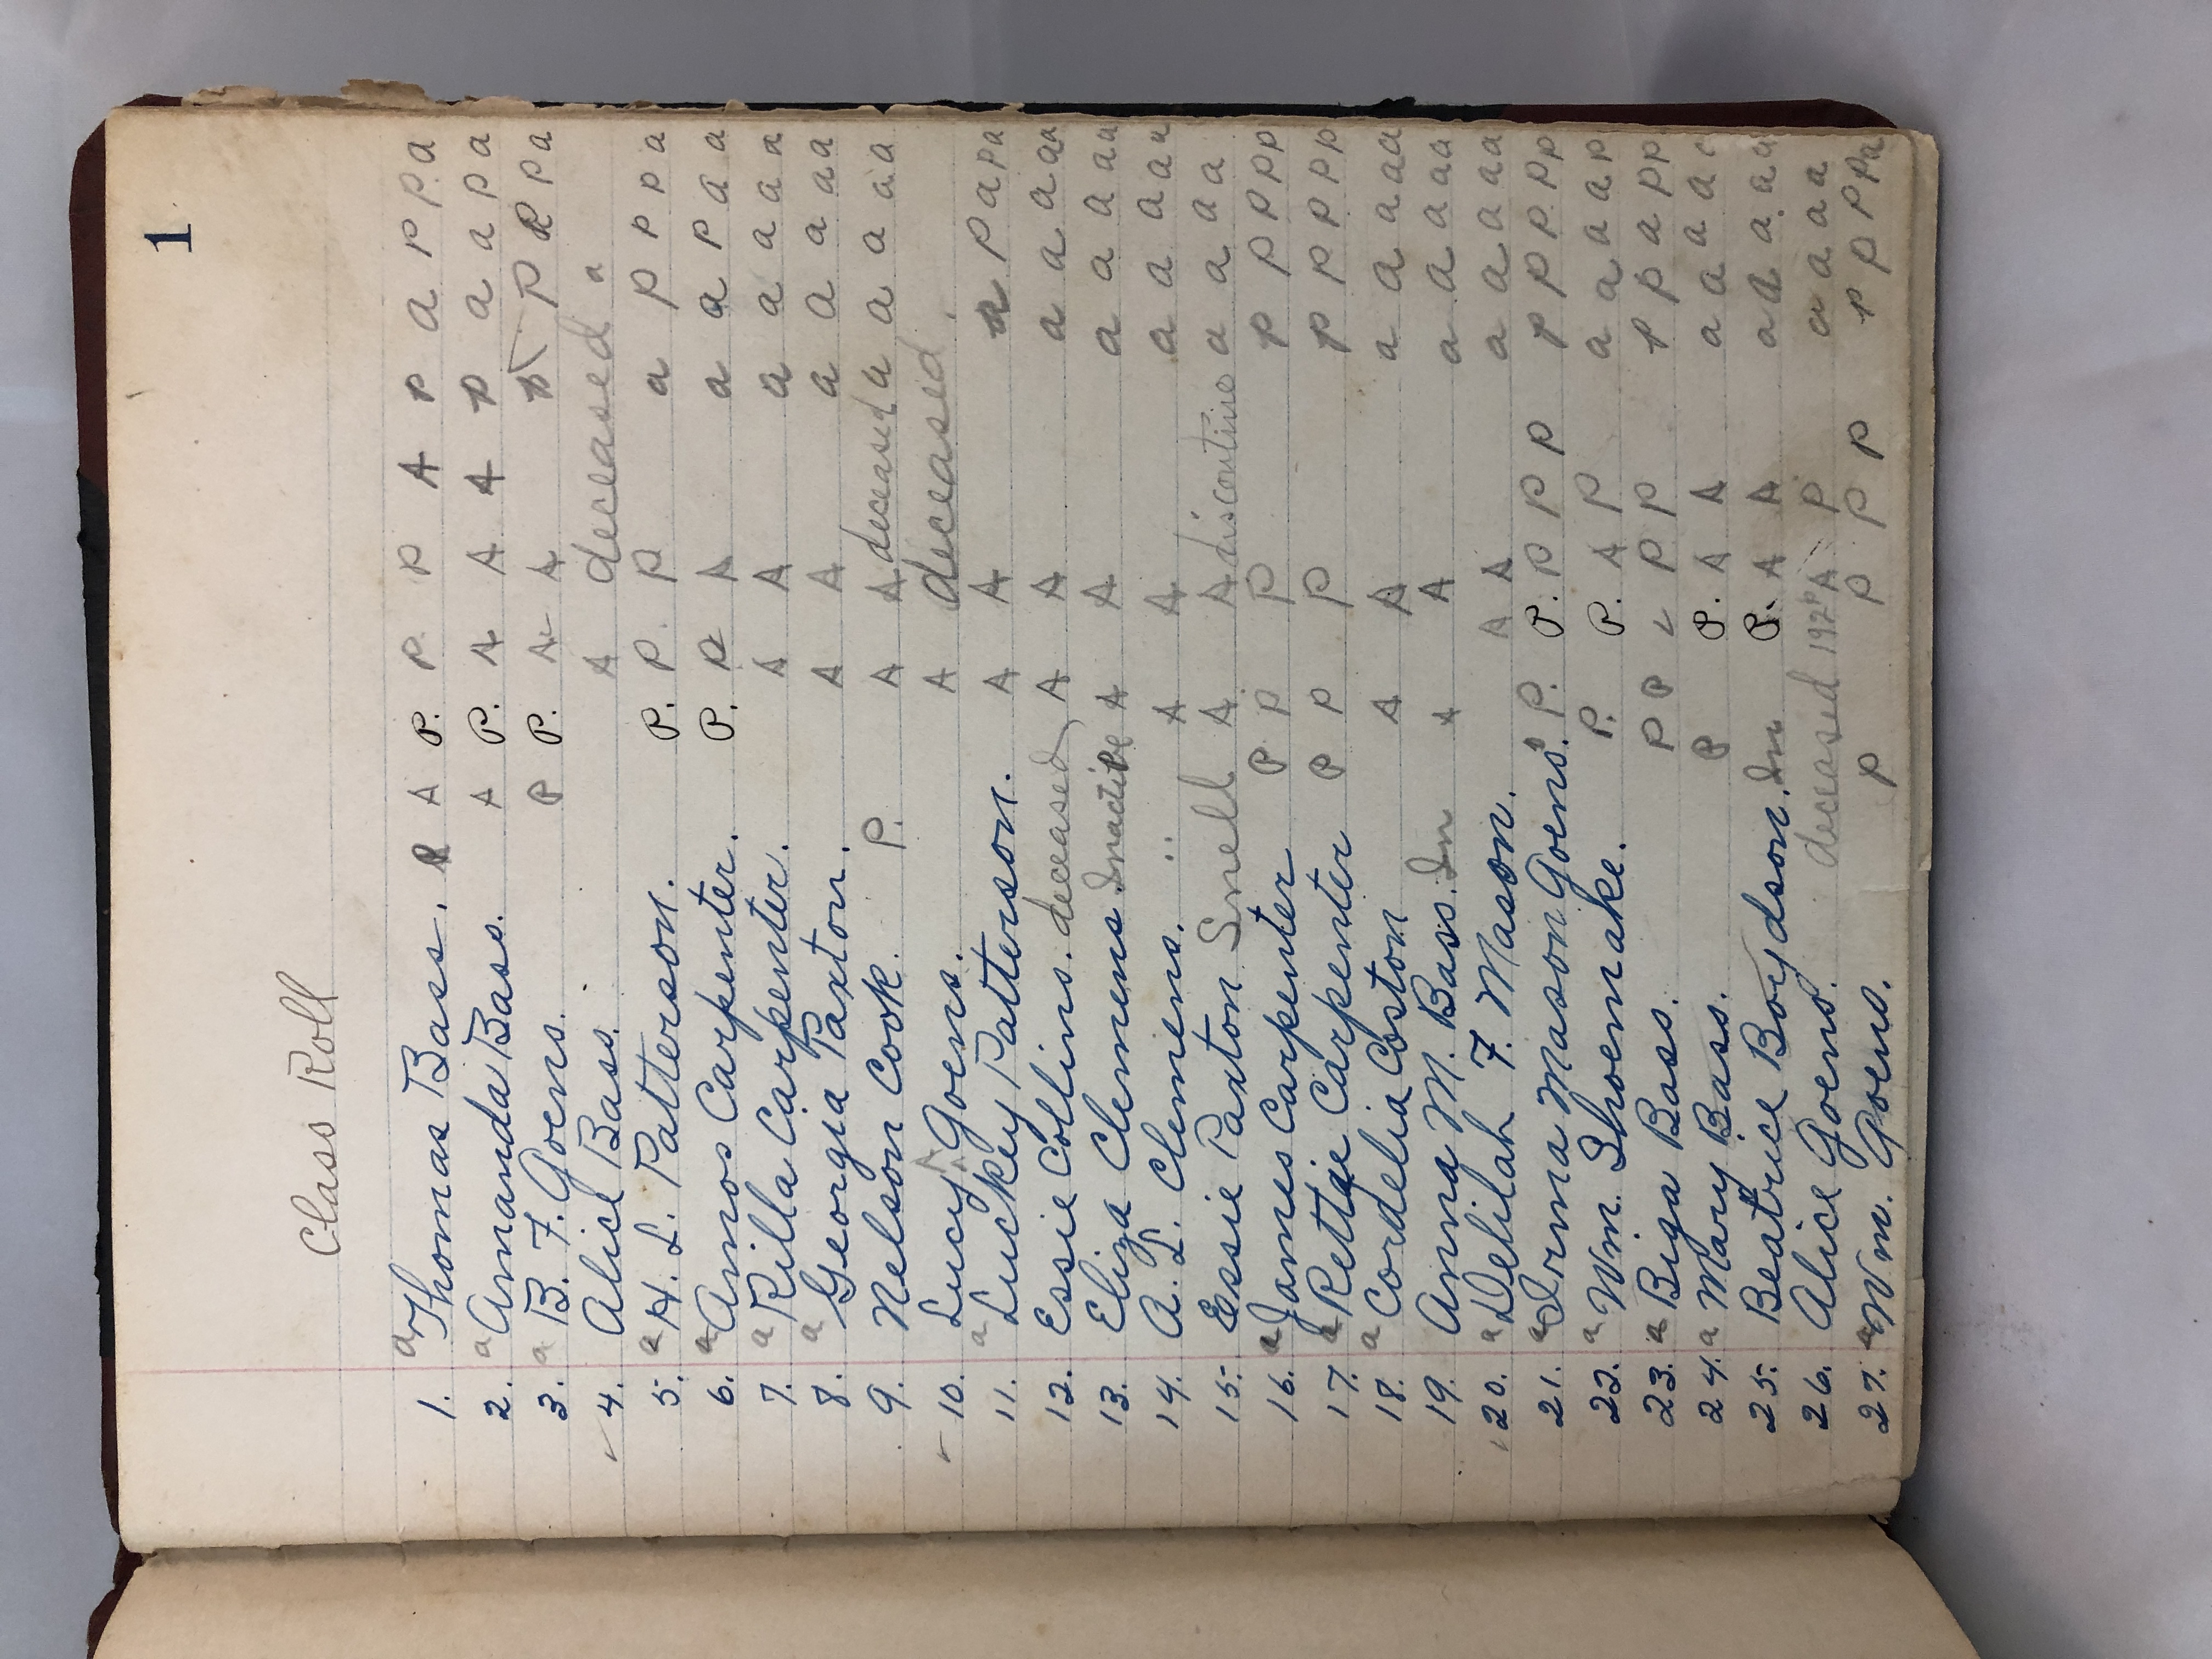 1
Class Roll
1. a Thomas Bass. P A P. P. P A P a P P. a
2. a Amanda Bass. A P. A A A P a a P a
3. a B. F. Goens. P P. A A P P P a
4. Alice Bass. A deceased a
5. a H. L. Patterson. P. P. P a P P P a
6. a Amos Carpenter. P. P A a a P a a
7. a Rilla Carpenter. A A a a a a a
8. a Georgia Paxton. A A a a a a a
9. Nelson Cook. P. A A deceased a a a a a
10. Lucy Goens. A deceased.
11. a Luckey Patterson. A A a P a P a
12. Essie Collins. deceased A A a a a a a
13. Eliza Clemens Inactive A A a a a a a
14. A. L. Clemens. " A A a a a a a
15. Essie Paxton Snell A A discontinue a a a a
16. a James Carpenter P P P P P P P P
17. a Rettie Carpenter P P P P P P P P
18. a Cordelia Coston A A a a a a a
19. Anna M. Bass. In A A a a a a a
20. a Delilah F. Mason. A A a a a a a
21. a Irma Mason Goens. P. P. P P P P P P. P P
22. a Wm. Shoemake. P. P. A P a a a a P
23. a Biga Bass. P P P P P P a P P
24. a Mary Bass. P P. A A a a a a
25. Beatrice Boydson. In P. A A a a a. a a
26. Alice Goens. deceased A P a a a a
27. a Wm. Goens. P P P P P P P P a